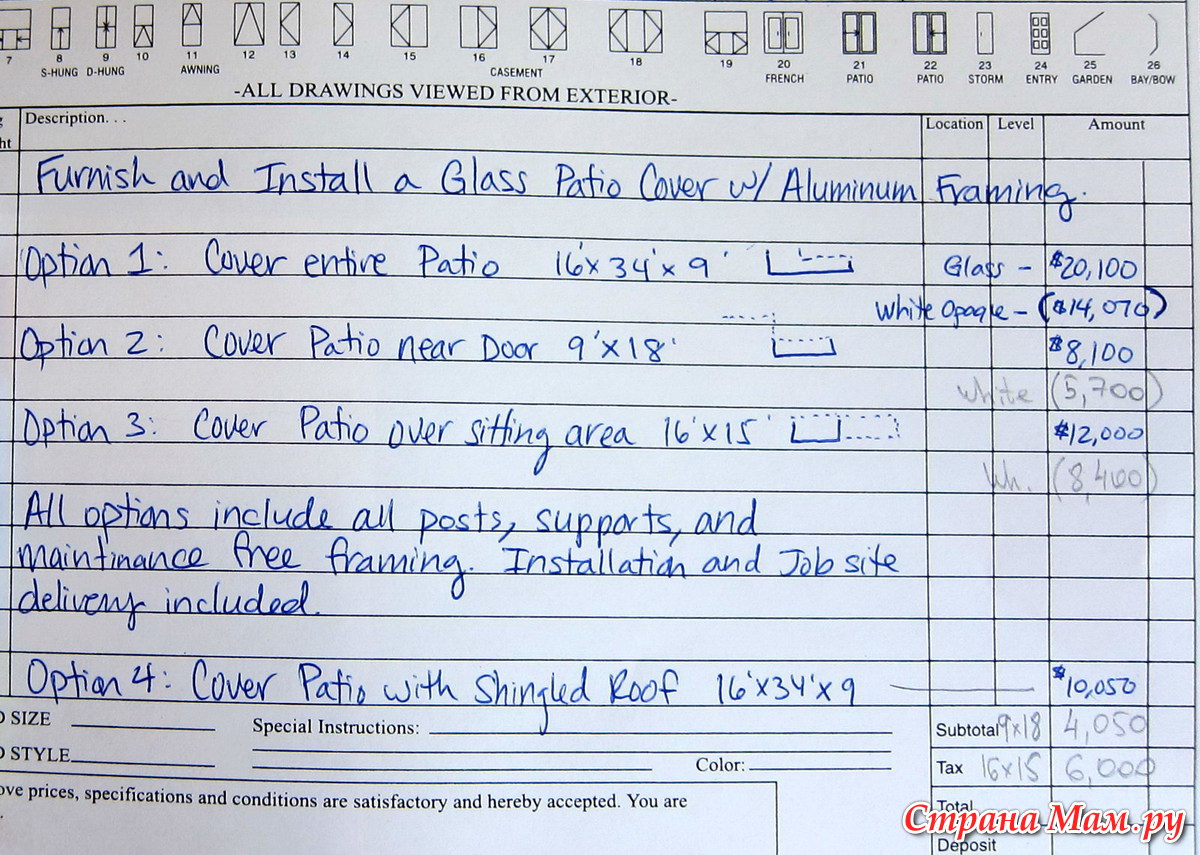 7 8 9 10 11 12 13 14 15 16 17 18 19 20 21 22 23 24 25 26
S-HUNG D-HUNG AWNING CASEMENT FRENCH PATIO PATIO STORM ENTRY GARDEN BAY/BOW
-ALL DRAWINGS VIEWED FROM EXTERIOR-
ht Description. . . Location Level Amount
Furnish and Install a Glass Patio Cover w/ Aluminum Framing.
Option 1: Cover entire Patio 16'x 34'x 9' Glass - $20,100
White Opaqle - ($14,070)
Option 2: Cover Patio near Door 9'x18' $8,100
White (5,700)
Option 3: Cover Patio over sitting area 16'x15' $12,000
Wh. (8,400)
All options include all posts, supports, and
maintinance free framing. Installation and Job site
delivery included.
Option 4: Cover Patio with Shingled Roof 16'x34'x9 $10,050
D SIZE Special Instructions: Subtotal 9x18 4,050
D STYLE Color: Tax 16x15 6,000
ove prices, specifications and conditions are satisfactory and hereby accepted. You are
Total
Страна Мам.ру
Deposit